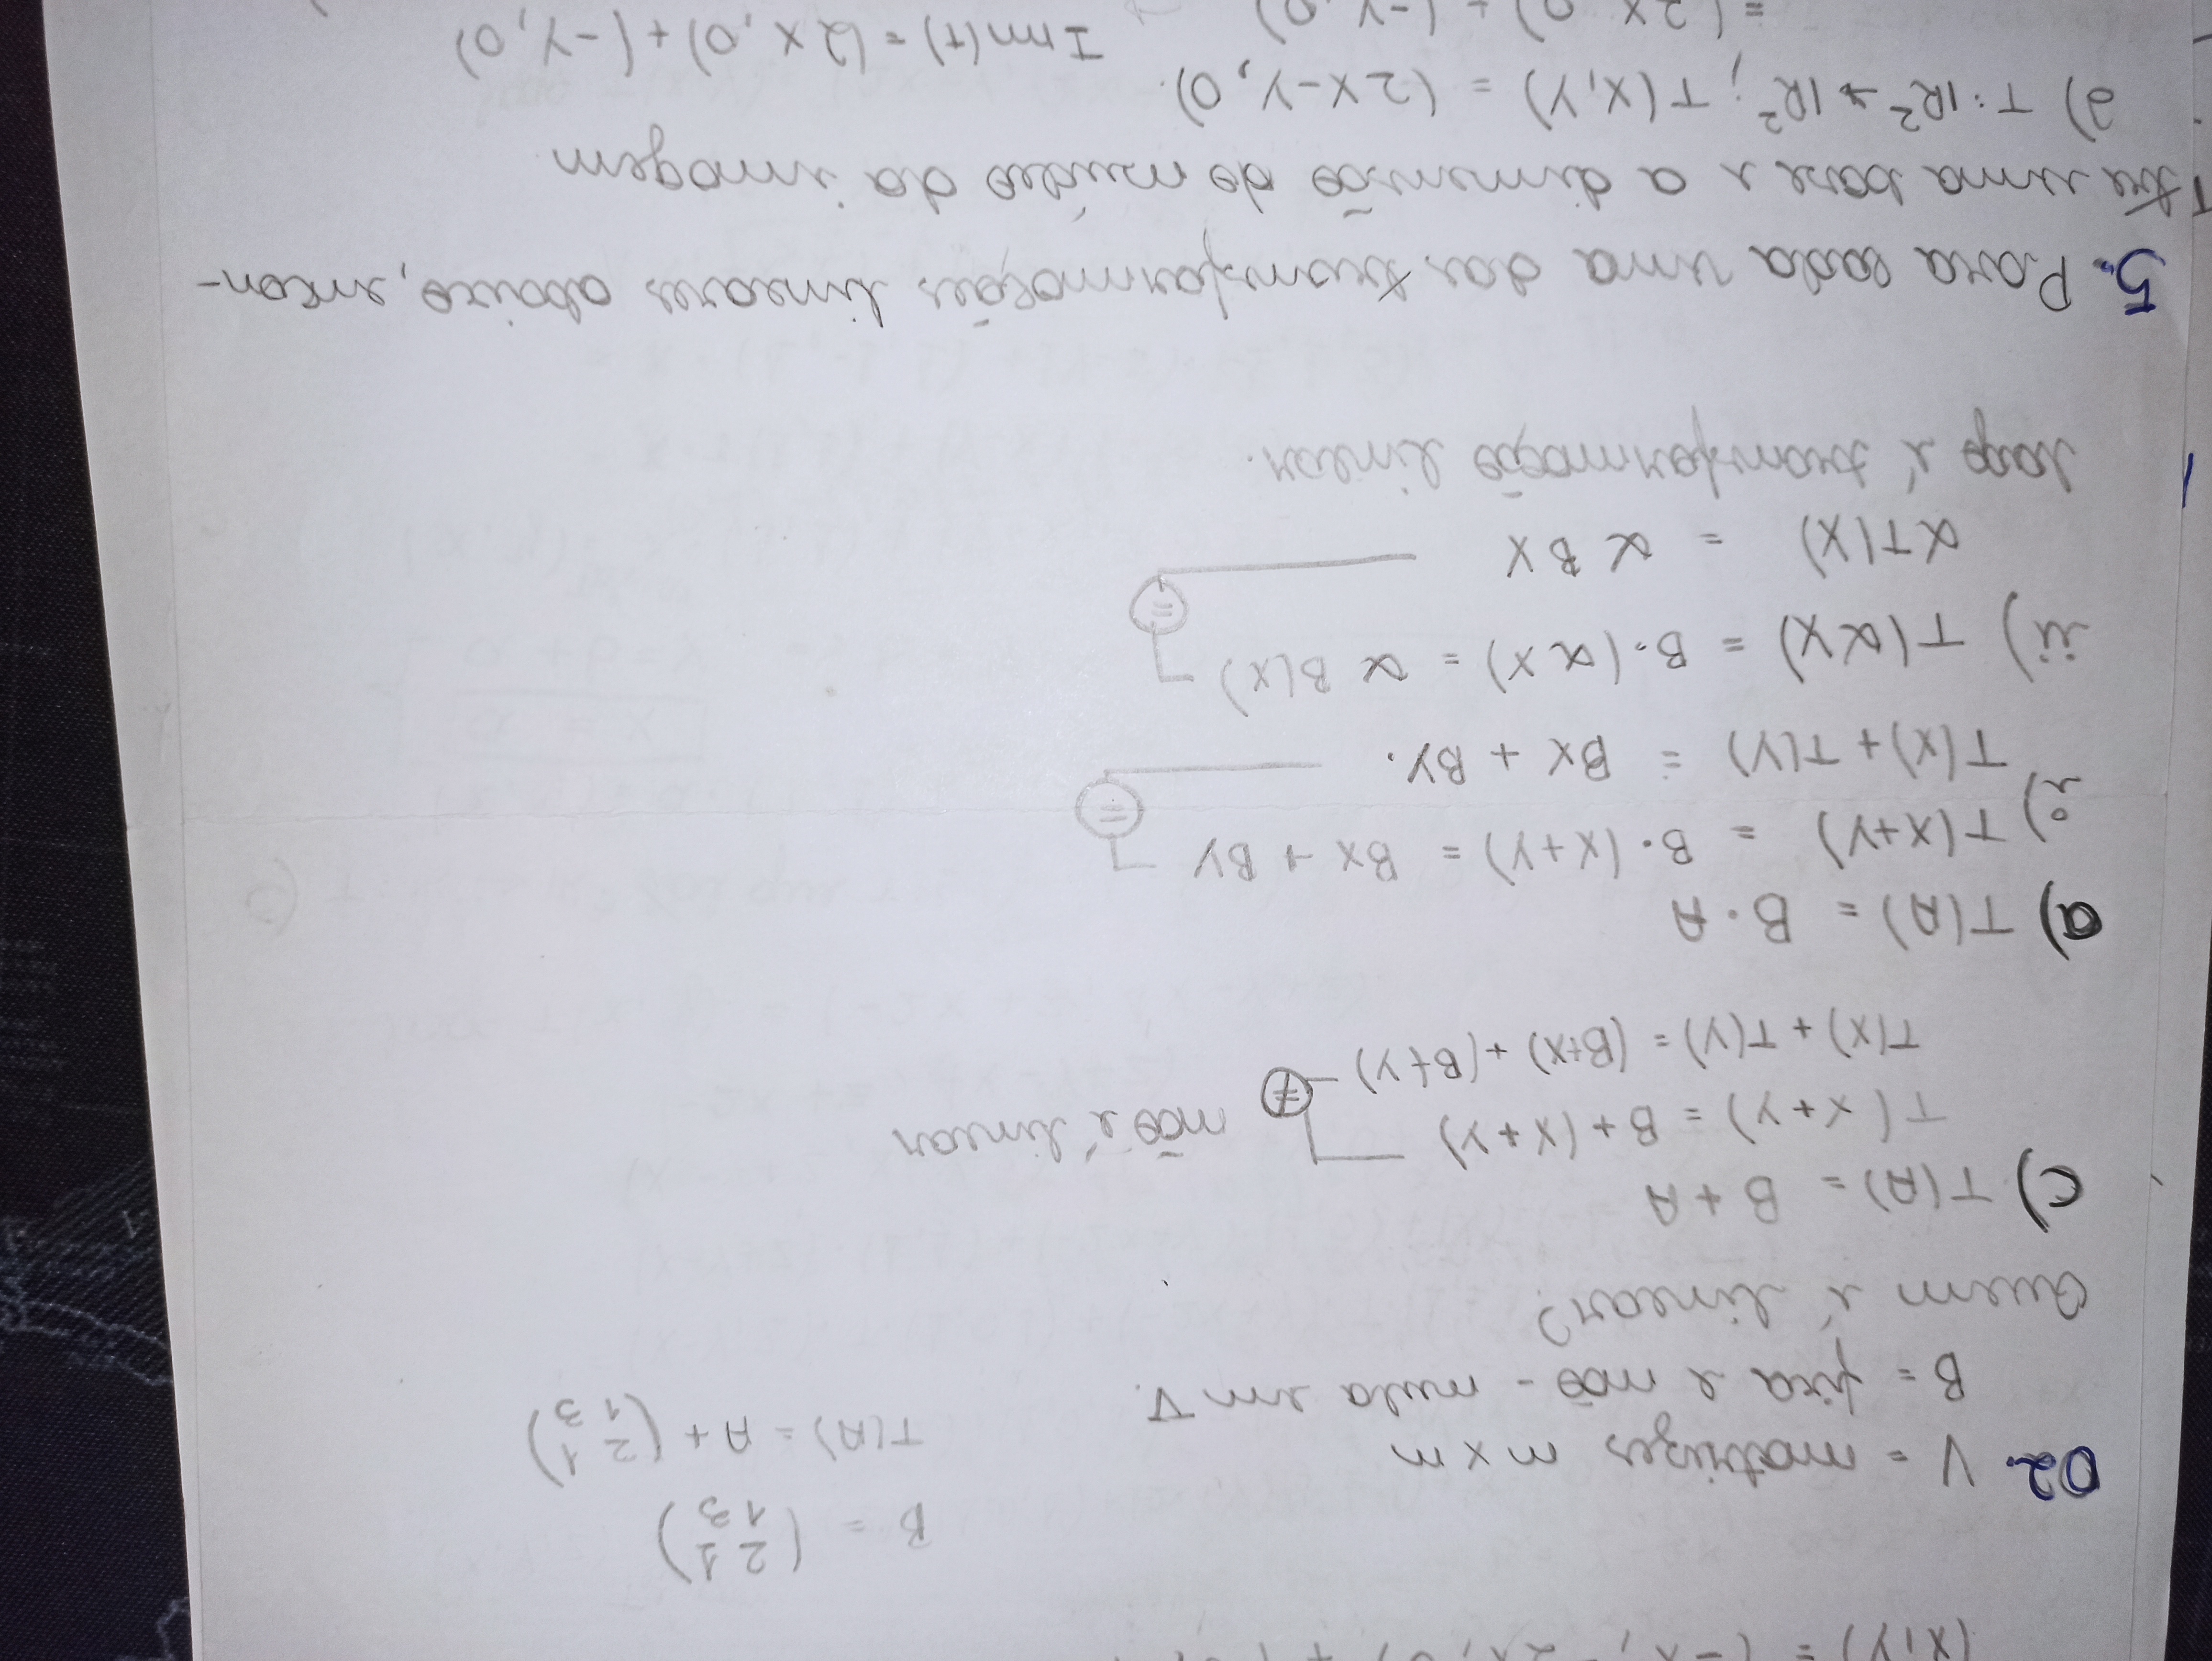 (X,Y) = (-X, -2X, 0) + (
B = (2 1
1 3)
02. V = matrizes n x n
T(A) = A + (2 1
1 3)
B = fixa e não-nula em V.
Quem é linear?
c) T(A) = B + A
T(X+Y) = B + (X+Y)
≠ não é linear
T(X) + T(Y) = (B+X) + (B+Y)
a) T(A) = B · A
i) T(X+Y) = B · (X+Y) = BX + BY
=
T(X) + T(Y) = BX + BY.
ii) T(αX) = B · (αX) = α B(X)
=
αT(X) = α BX
logo é transformação linear.
5. Para cada uma das transformações lineares abaixo, encon-
tre uma base e a dimensão do núcleo da imagem
a) T: IR² → IR²; T(X,Y) = (2X-Y, 0).
Im(T) = (2X, 0) + (-Y, 0)
= (2X, 0) + (-Y, 0)